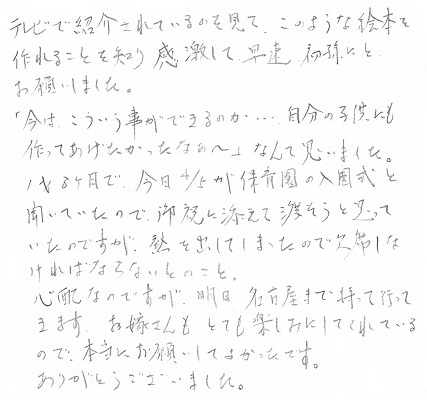 テレビで紹介されているのを見て、このような絵本を
作れることを知り感激して、早速、初孫にと
お願いしました。
「今は、こういう事ができるのか・・・、自分の子供にも
作ってあげたかったなぁ〜」なんて思いました。
1才8ヶ月で、今日4/5が保育園の入園式と
聞いていたので、御祝に添えて渡そうと思って
いたのですが、熱を出してしまったので欠席しな
ければならないとのこと。
心配なのですが、明日、名古屋まで持って行って
きます。お嫁さんも、とても楽しみにしてくれている
ので、本当にお願いしてよかったです。
ありがとうございました。